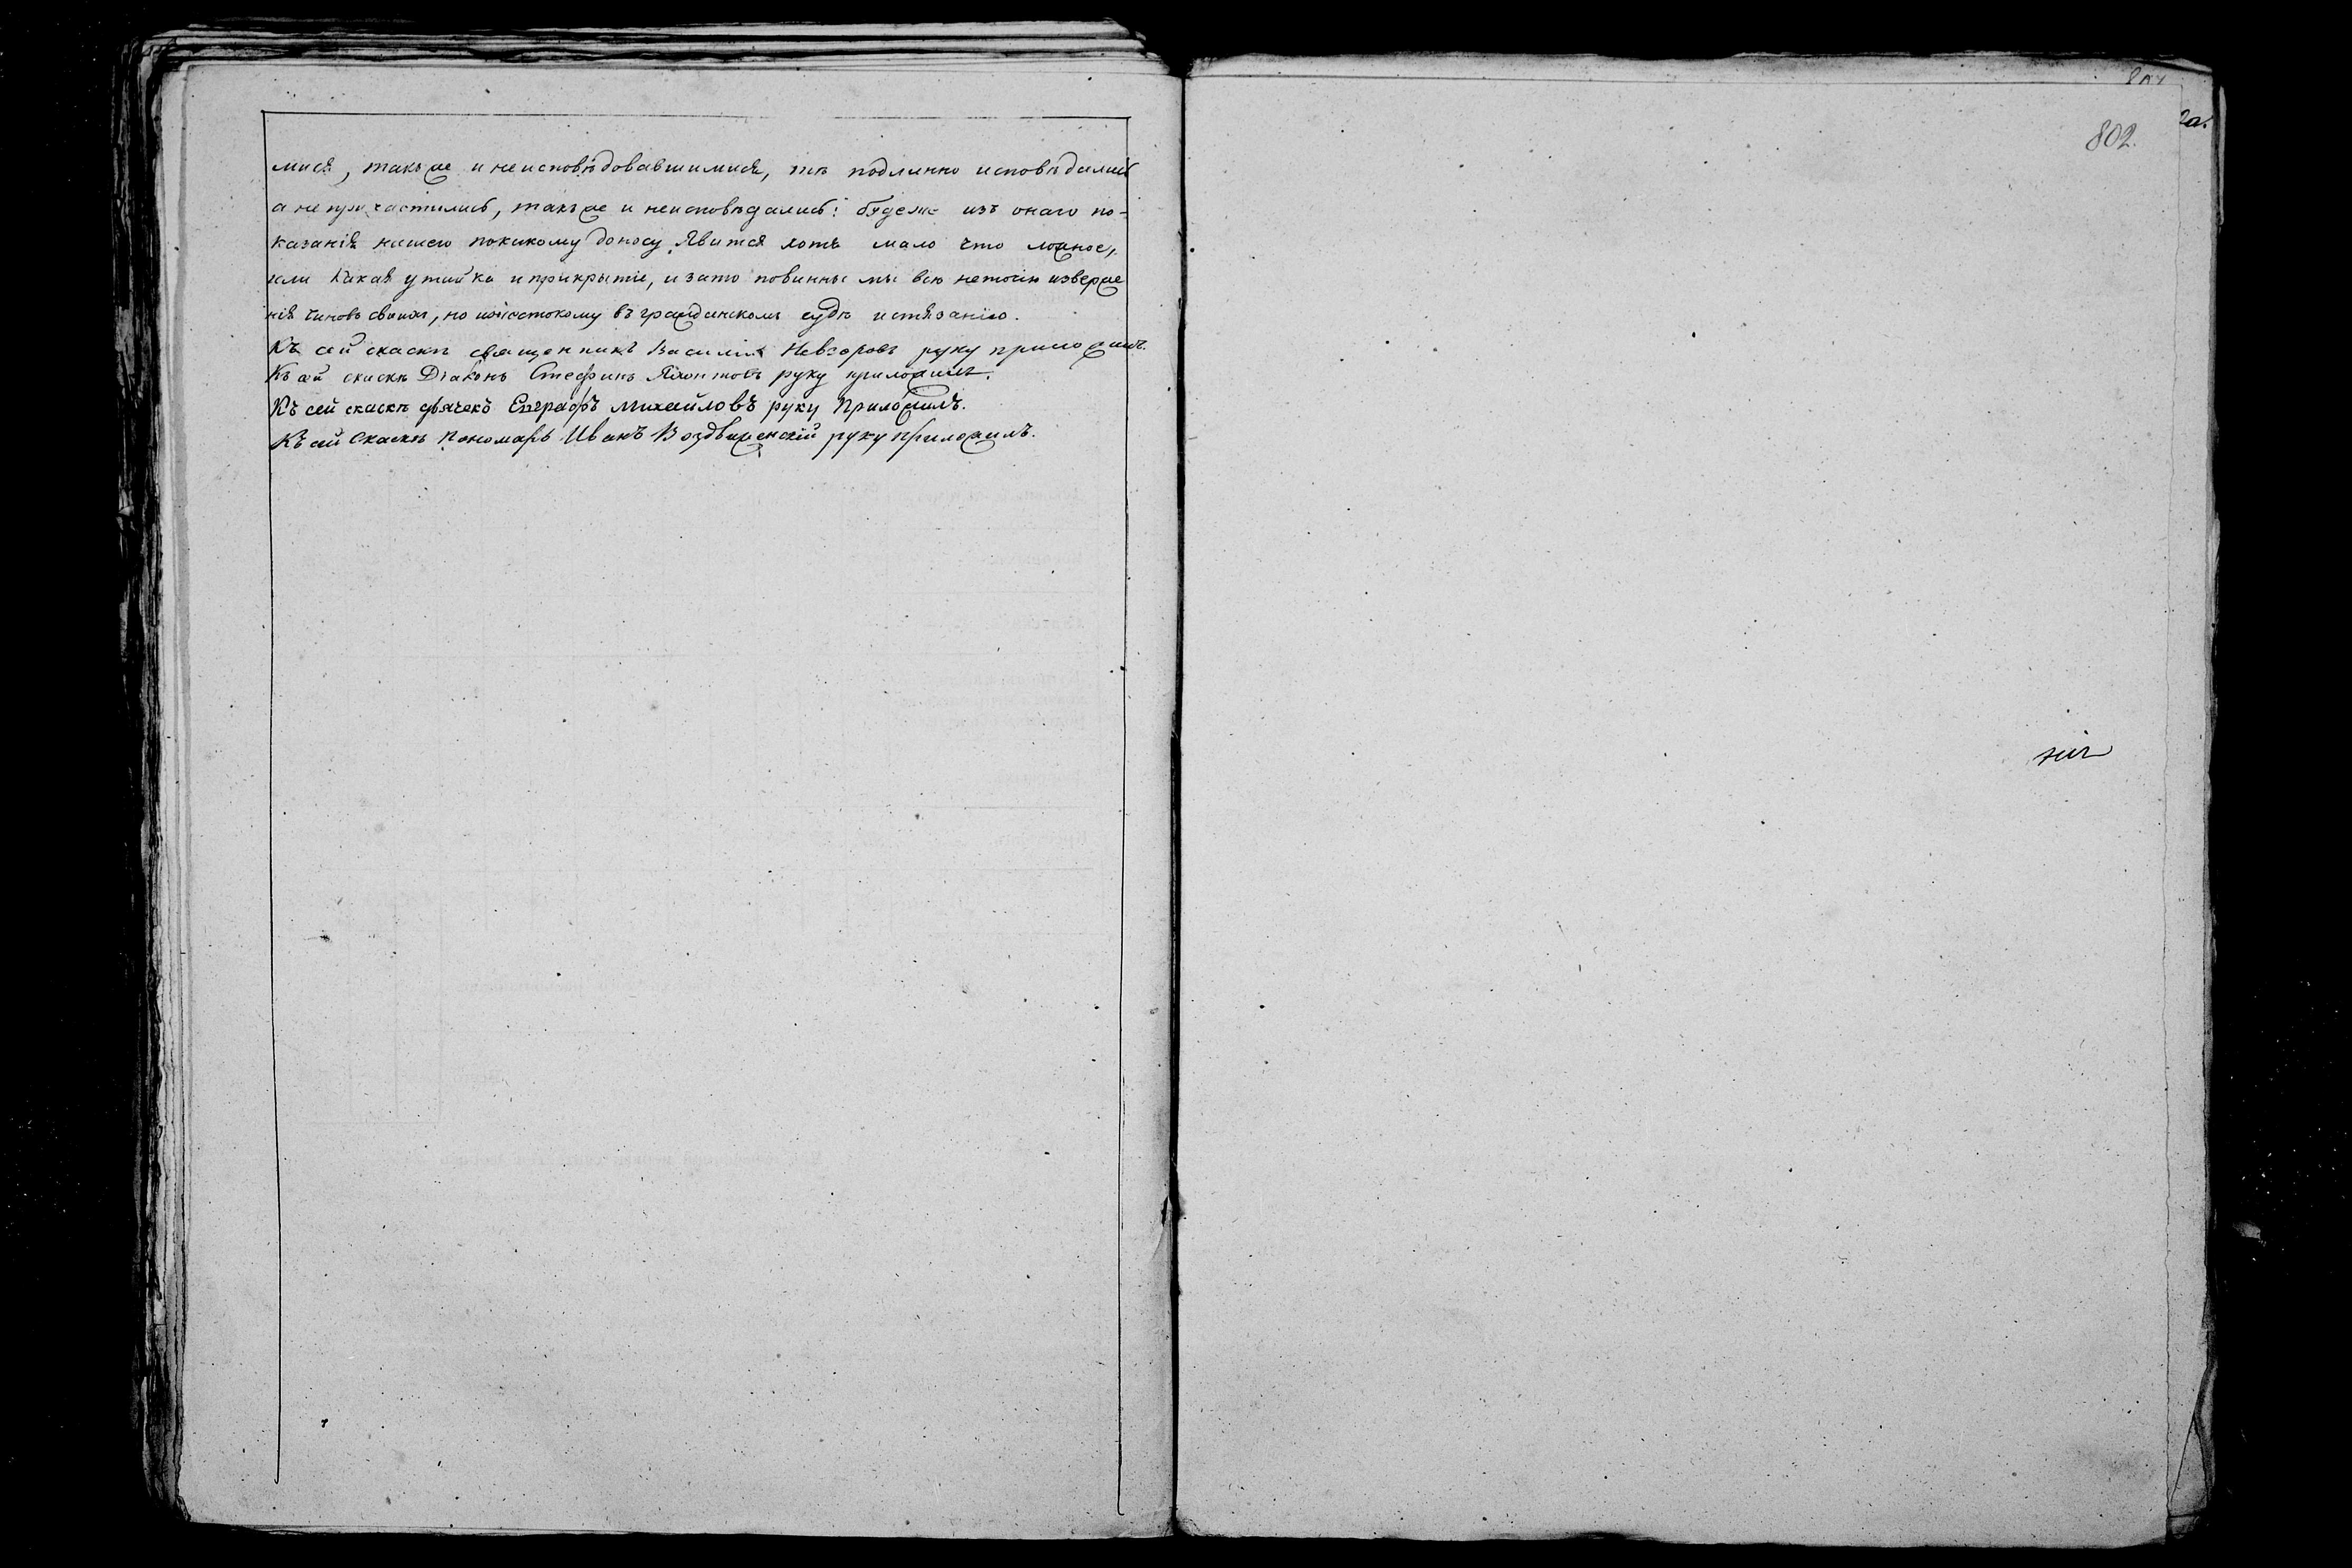 мися, такъ же и неисповѣдовавшимися, тѣ подлинно исповѣдались
а не причастились, такъ же и неисповѣдались: будеже изъ онаго по-
казанія нашего по какому доносу явится хотя мало что ложное,
или какая утайка и прикрытіе, и за то повинны мы всю не точію изверже
нія чиновъ своихъ, но и жестокому въ гражданскомъ судѣ истязанію.
Къ сей скаскѣ священникъ Василій Невзоровъ руку приложилъ.
Къ сей скаскѣ Діаконъ Стефанъ руку приложилъ.
Къ сей скаскѣ дьячекъ Евграфъ Михайловъ руку приложилъ.
Къ сей скаскѣ пономарь Иванъ Воздвиженскій руку приложилъ.
802.